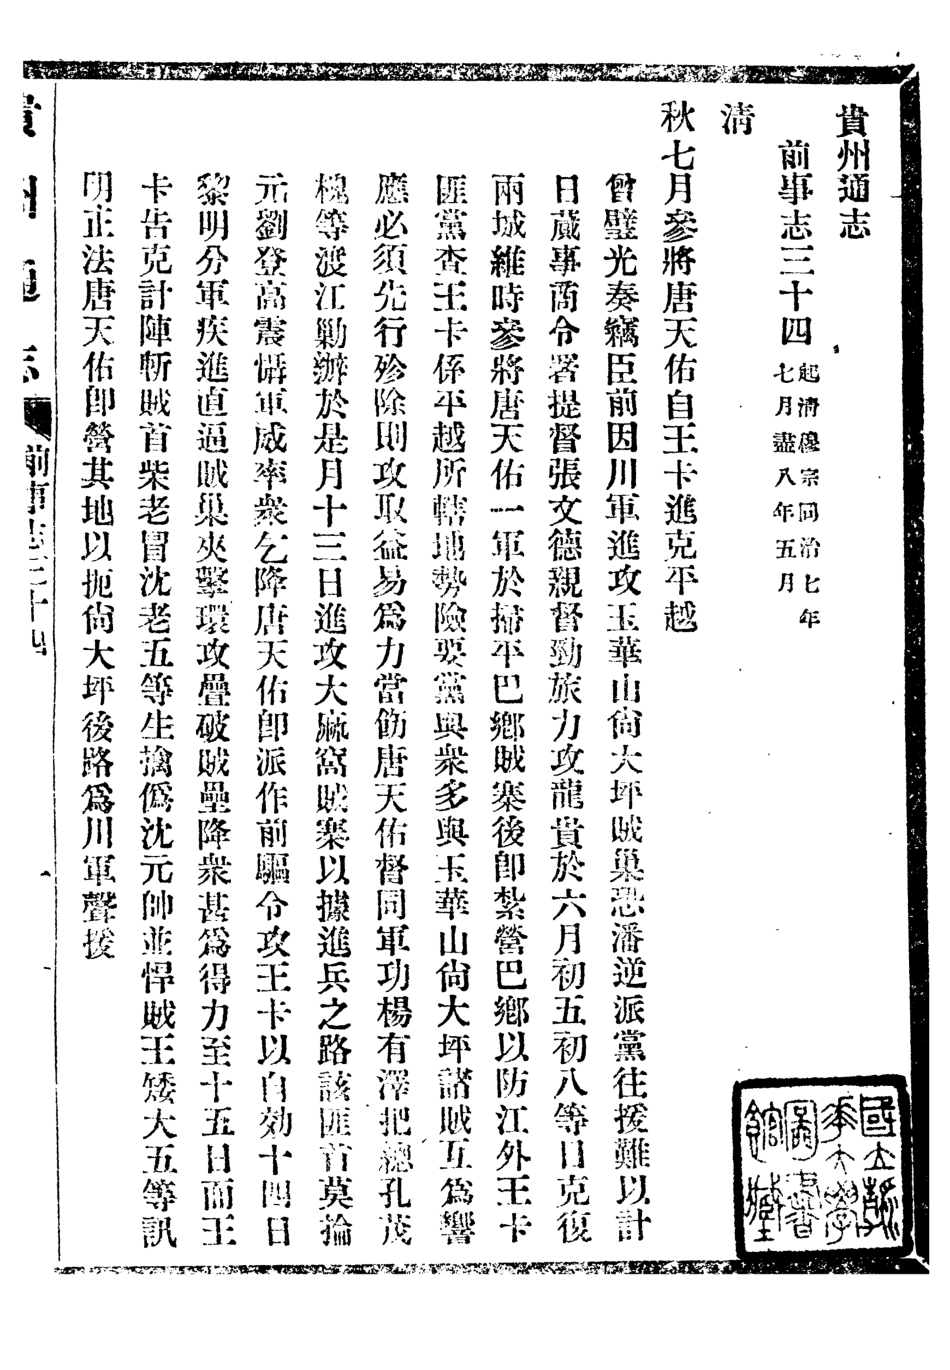 貴州通志
前事志三十四
起清穆宗同治七年
七月盡八年五月
清
秋七月參將唐天佑自王卡進克平越
曾璧光奏竊臣前因川軍進攻玉華山尙大坪賊巢恐潘逆派黨往援難以計
日蕆事商令署提督張文德親督勁旅力攻龍貴於六月初五初八等日克復
兩城維時參將唐天佑一軍於掃平巴鄉賊寨後卽紮營巴鄉以防江外王卡
匪黨查王卡係平越所轄地勢險要黨與衆多與玉華山尙大坪諸賊互爲響
應必須先行殄除則攻取益易爲力當飭唐天佑督同軍功楊有澤把總孔茂
槐等渡江勦辦於是月十三日進攻大麻窩賊寨以據進兵之路該匪首莫掄
元劉登高震慴軍威率衆乞降唐天佑卽派作前驅令攻王卡以自効十四日
黎明分軍疾進直逼賊巢夾擊環攻疊破賊壘降衆甚爲得力至十五日而王
卡告克計陣斬賊首柴老冒沈老五等生擒僞沈元帥並悍賊王矮大五等訊
明正法唐天佑卽營其地以扼尙大坪後路爲川軍聲援
貴州通志
前事志三十四
國立清華大學圖書館藏